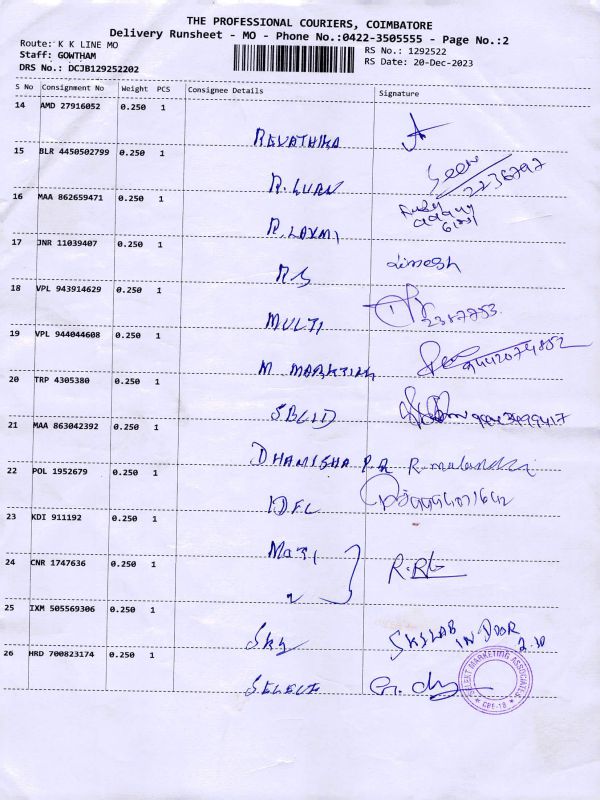 THE PROFESSIONAL COURIERS, COIMBATORE
Delivery Runsheet - MO - Phone No.:0422-3505555 - Page No.:2
Route: K K LINE MO
RS No.: 1292522
Staff: GOWTHAM
RS Date: 20-Dec-2023
DRS No.: DCJB129252202
S No Consignment No Weight PCS Consignee Details Signature
14 AMD 27916052 0.250 1
REVATHIKA
15 BLR 4450502799 0.250 1
2236797
16 MAA 862659471 0.250 1
R. LAXMI
17 JNR 11039407 0.250 1
R S dimesh
18 VPL 943914629 0.250 1
MULTI
19 VPL 944044608 0.250 1
M 9442074802
20 TRP 4305380 0.250 1
21 MAA 863042392 0.250 1
DHAMISHA P.R
22 POL 1952679 0.250 1
23 KDI 911192 0.250 1
24 CNR 1747636 0.250 1
25 IXM 505569306 0.250 1
Sky SKYLAB IN DOOR
2.10
26 HRD 700823174 0.250 1
SELECT
SELEKT MARKETING ASSOCIATES
CBE-18